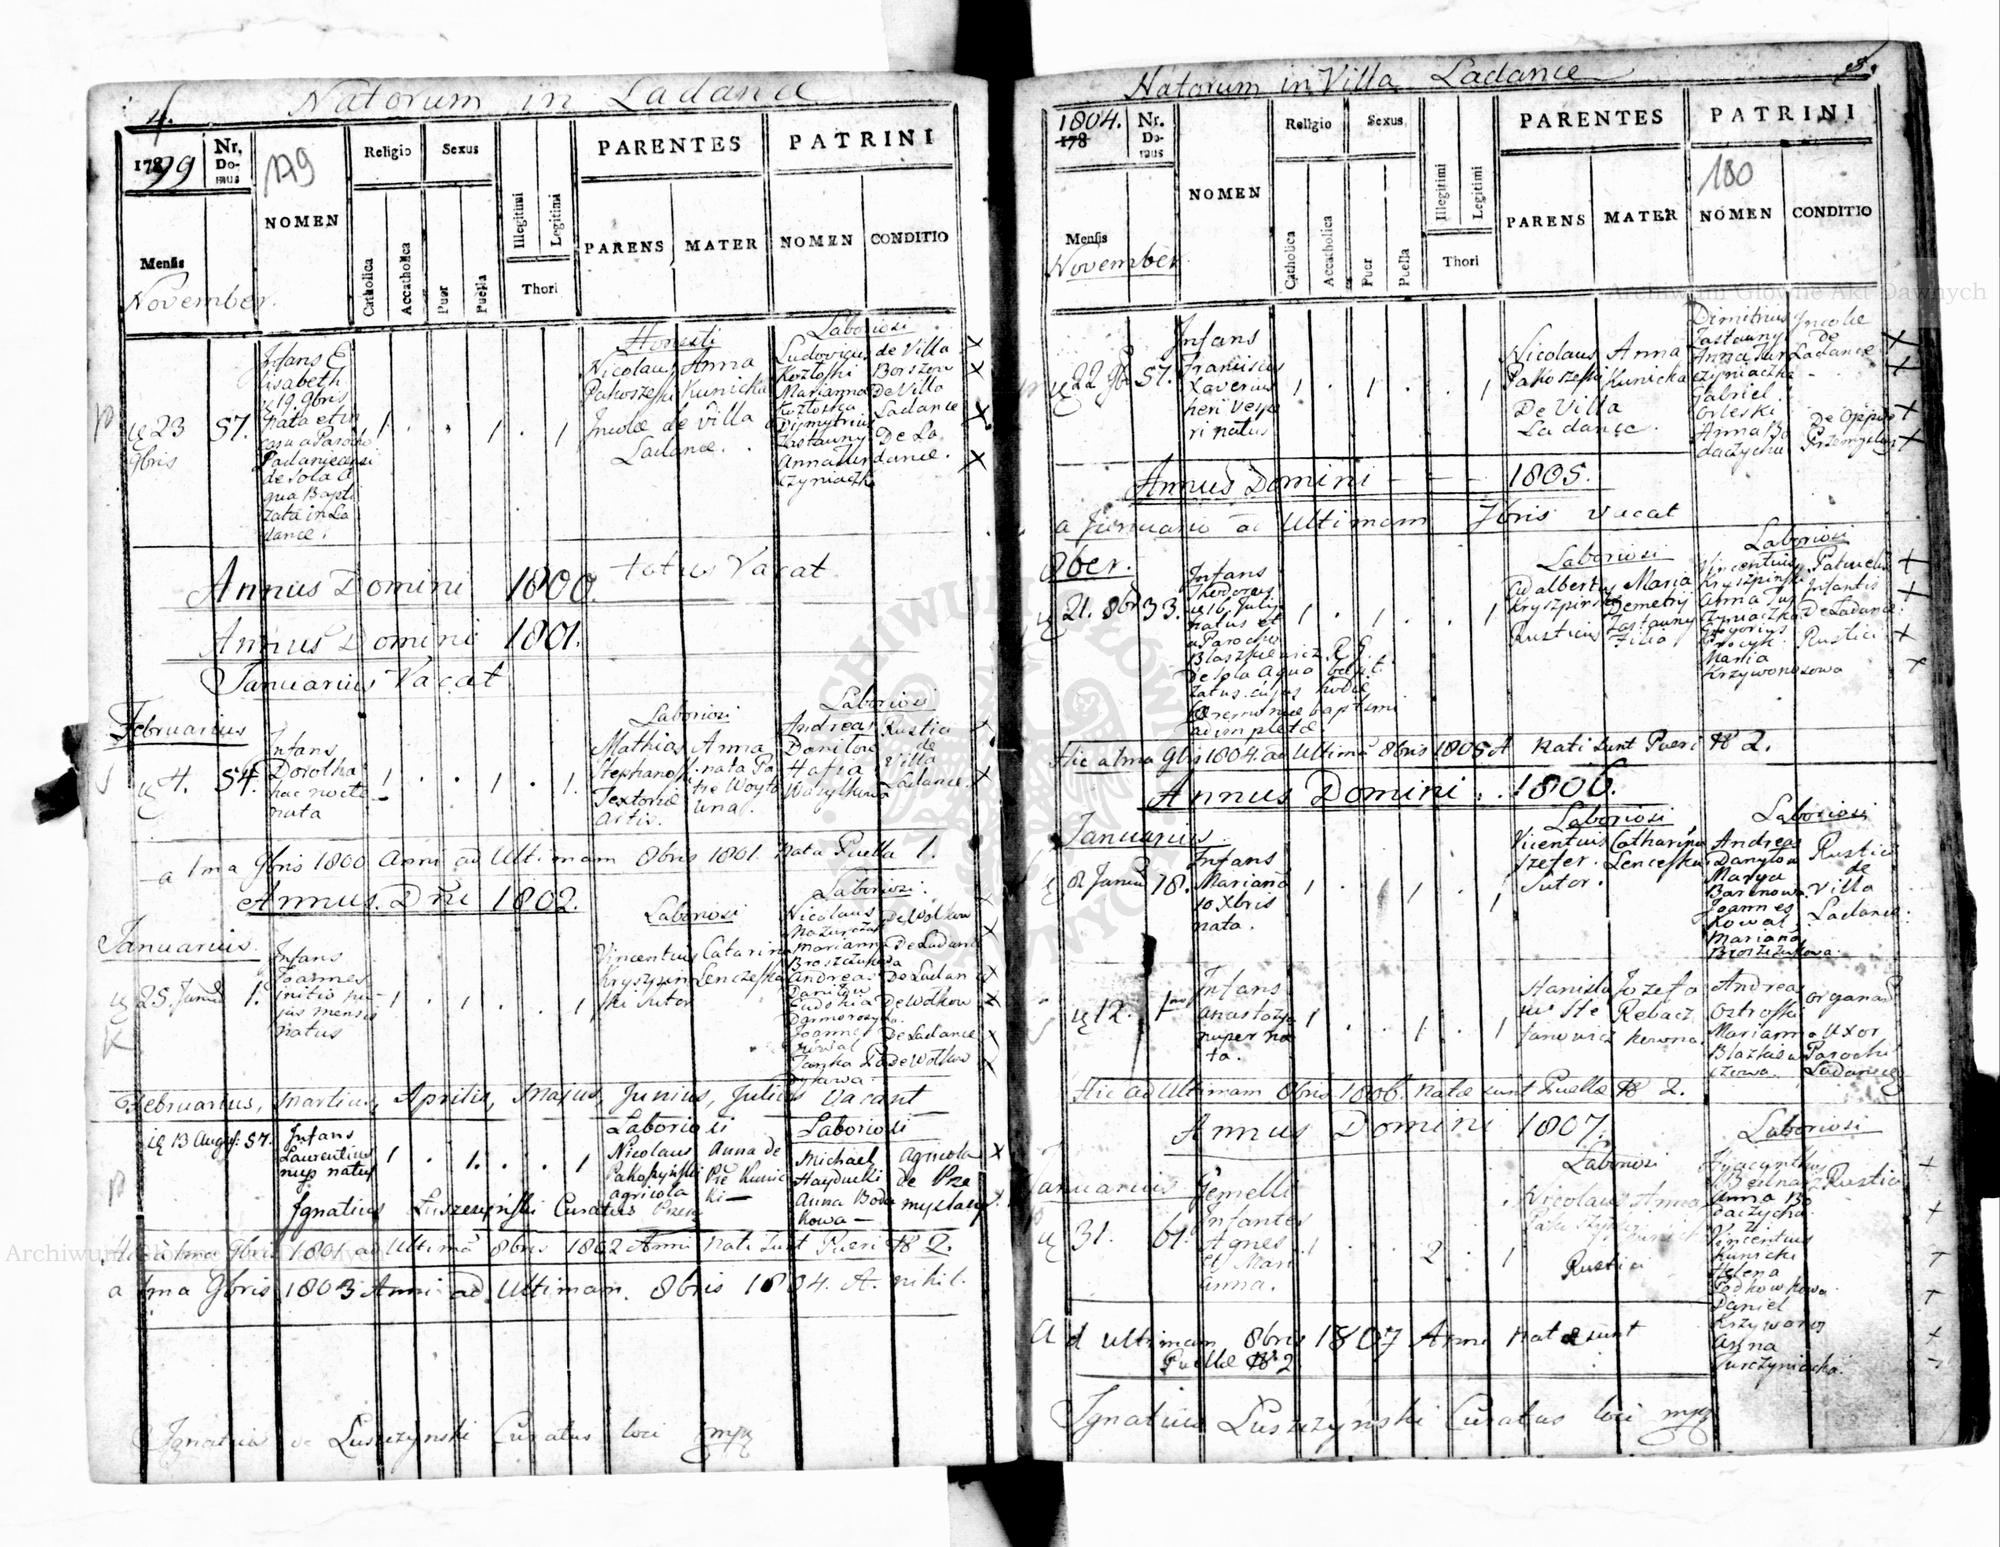 4.
Natorum in Ladance
1799
Nr. Do- mus
179
NOMEN
Religio
Sexus
PARENTES
PATRINI
Mensis
November.
Catholica
Accatholica
Puer
Puella
Illegitimi
Legitimi
Thori
PARENS
MATER
NOMEN
CONDITIO
23
9bris
57.
Infans E
lisabeth
19 9bris
nata et in
casu a Parocho
Ladanecensi
de sola a
qua Bapti
zata in La
dance.
1 . . 1 . 1
Honesti
Nicolaus Anna
Pakoszeski Kunicka
Incolae de villa
Ladance.
Laboriosi
Ludovicus de Villa
Kozloski Borszow
Marianna De Villa
Kozloska Ladance
Dymytrius
Zastawny De La
Anna Tur dance.
czyniaczka
Annus Domini 1800. totus Vacat
Annus Domini 1801.
Januarius Vacat
Februarius
4. 54.
Infans
Dorotha
hac nocte
nata
1 . . 1 . 1.
Laboriosi
Mathias Anna
Stephanoski nata Pa
Textoriae tre Woyto
Artis. wna.
Laboriosi
Andreas Rustici
Danilow de
Hafia Villa
Wasylkowa Ladance.
a 1ma 9bris 1800 Anni ad Ultimam 8bris 1801. Nata Puella 1.
Annus Dni 1802.
Januarius.
25. Januar 1.
Infans
Joannes
initio hu-
jus mensis
natus
1 . 1 . . 1
Laboriosi
Vincentius Catarina
Kryszpin Lenczeska
ski Sutor
Laboriosi.
Nicolaus De Wolkow
Mazurczak
Marianna De Ladance
Broszczukowa
Andreas De Ladan
Danilow
Eudokia De Wolkow
Joannes De Ladance
Kowal
De Wolkow
Februarius, Martius, Aprilis, Majus, Junius, Julius Vacant
13 August. 57.
Infans
Laurentius
nup natus
1 . 1. . . 1
Laboriosi
Nicolaus Anna de
Pakoszynski Pre Kunic
agricola ki —
Laboriosi
Michael Agricola
Hayducki de Prze
Anna Boda myslany
kowa —
Ignatius Luszczyński Curatus
a 1ma 9bris 1801 ad Ultimam 8bris 1802 Anni Nati sunt Pueri N 2.
a 1ma 9bris 1803 Anni ad Ultimam 8bris 1804. A. nihil.
Ignatius Luszczynski Curatus loci mpp
Natorum in Villa Ladance
1804.
178
Nr. Do- mus
NOMEN
Religio
Sexus
PARENTES
PATRINI
180
Mensis
November
Catholica
Accatholica
Puer
Puella
Illegitimi
Legitimi
Thori
PARENS
MATER
NOMEN
CONDITIO
22 9b 57.
Infans
Franciscus
Xaverius
heri vespe
ri natus
1 . 1 . . 1
Nicolaus Anna
Pakoszeski Kunicka
De Villa
Ladance.
Dimitrius Incolae
Zastawny De
Anna Tur Ladance
czyniaczka
Gabriel
Orleski De Oppido
Anna Bo Przemyslany
daczycha
Annus Domini - - - 1805.
a Januario ad Ultimam 7bris vacat
8ber.
21. 8br 33.
Infans
Theodorus
16 Julii
natus et
a Parocho
Blaszkiewicz R. G.
de sola Aqua bapti
zatus cujus hodie
ceremoniae baptismi
adimpletae.
1 . 1 . . 1
Laboriosi
Adalbertus Maria
Kryszpinski Demetrij
Rusticus Zastawny
Filia
Laboriosi
Vincentius Patruelis
Kryszpinski Infantis
Anna Tur De Ladance.
czyniaczka
Gregorius Rustici
Procyk
Maria
Krzywonosowa
Hic a 1ma 9bris 1804. ad Ultimam 8bris 1805 A Nati sunt Pueri N 2.
Annus Domini . . 1806.
Januarius.
8 Januar 18.
Infans
Marianna
10 Xbris
nata.
1 . . 1 . 1
Laboriosi
Vicentius Catharina
Szefer. Lenceska
Sutor.
Laboriosi
Andreas Rustici
Danylow de
Marya Villa
Baranowa Ladance.
Joannes
Kowal
Marianna
Broszczukowa.
12. 1mo
Infans
Anastazya
nuper na
ta.
1 . . 1 . 1
Stanisla Jozefa
us Ste Rebacz
fanowicz kowna.
Andreas Organar
Ostroski
Marianna Uxor
Blazkiewi Parochi
czowa. Ladance
Hic ad Ultimam 8bris 1806. Natae sunt Puellae N 2.
Annus Domini 1807.
Januarius
31. 61.
Gemelli
Infantes
Agnes
et Mari
anna.
1 . . 2 . 1
Laboriosi
Nicolaus Anna
Rustici
Laboriosi
Hyacynthus
Bednarz Rustici
Anna Bo
daczycha
Vincentius
Kunicki
Helena
Daniel
Krzywonos
Anna
Turczyniacka.
Ad ultimam 8bris 1807 Anni Natae sunt
Puellae N 2
Ignatius Luszczyński Curatus loci mpp
Archiwum Główne Akt Dawnych